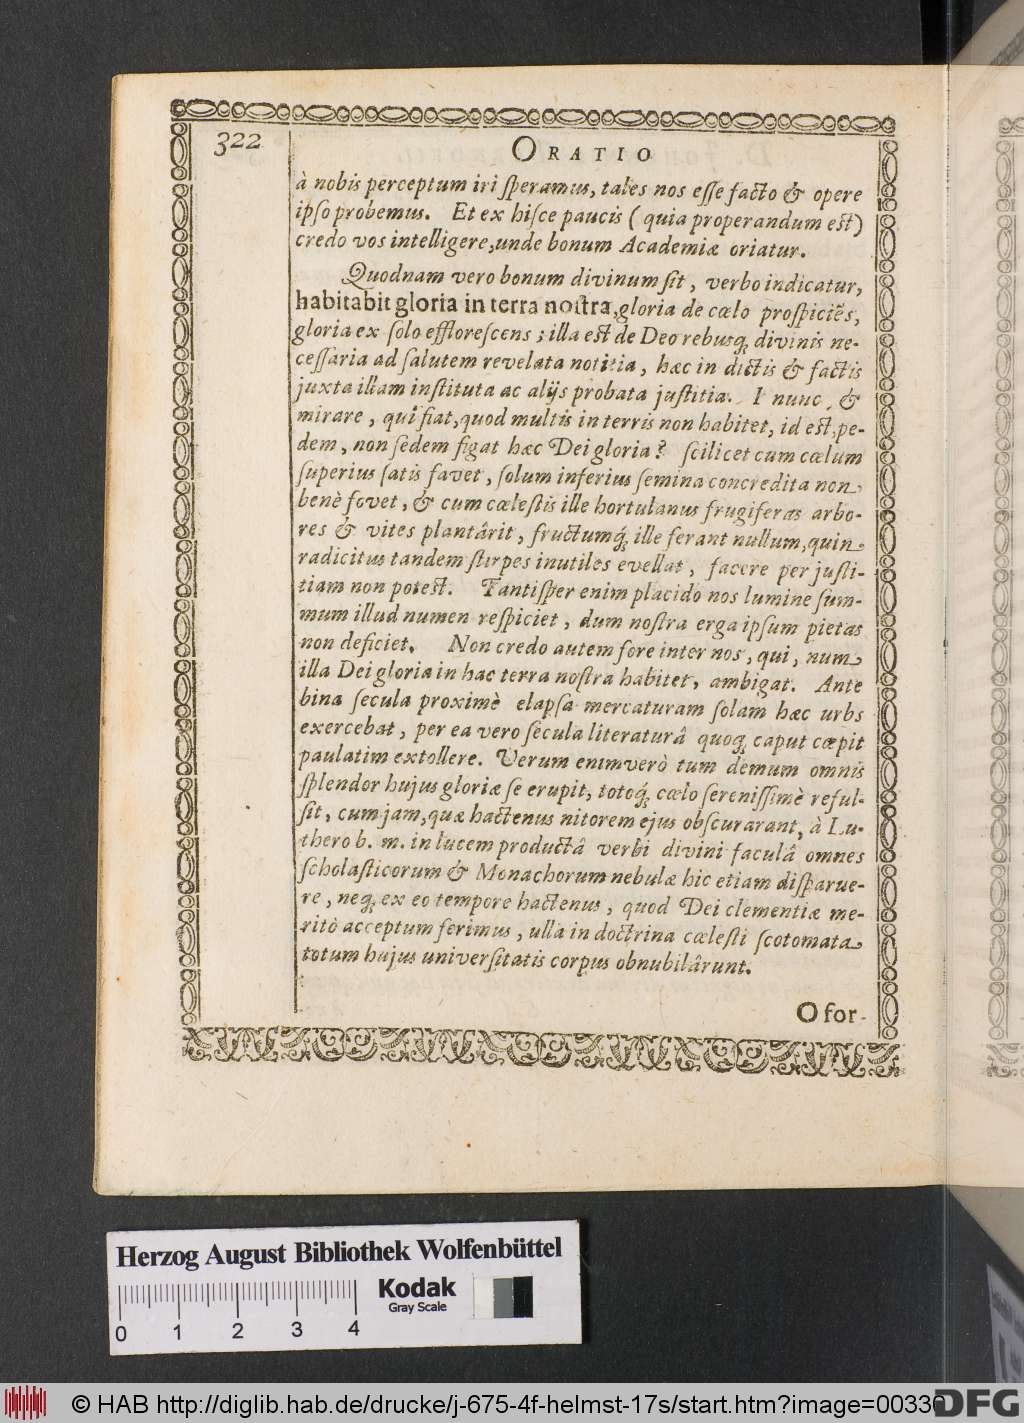 322
ORATIO
à nobis perceptum iri ſperamus, tales nos eſſe facto & opere
ipſo probemus. Et ex hiſce paucis (quia properandum est)
credo vos intelligere, unde bonum Academiæ oriatur.
Quodnam vero bonum divinum ſit, verbo indicatur,
habitabit gloria in terra noſtra, gloria de cœlo proſpiciẽs,
gloria ex ſolo effloreſcens; illa est de Deo rebusq́; divinis ne-
ceſſaria ad ſalutem revelata notitia, hæc in dictis & factis
juxta illam inſtituta ac alijs probata juſtitia. I nunc, &
mirare, quî fiat, quod multis in terris non habitet, id est, pe-
dem, non ſedem figat hæc Dei gloria? ſcilicet cum cœlum
ſuperius ſatis favet, ſolum inferius ſemina concredita non
benè fovet, & cum cœleſtis ille hortulanus frugiferas arbo-
res & vites plantârit, fructumq́; ille ferant nullum, quin
radicitus tandem ſtirpes inutiles evellat, facere per juſti-
tiam non potest. Tantiſper enim placido nos lumine ſum-
mum illud numen reſpiciet, dum noſtra erga ipſum pietas
non deficiet. Non credo autem fore inter nos, qui, num
illa Dei gloria in hac terra noſtra habitet, ambigat. Ante
bina ſecula proximè elapſa mercaturam ſolam hæc urbs
exercebat, per ea vero ſecula literaturâ quoq; caput cœpit
paulatim extollere. Verum enimverò tum demum omnis
ſplendor hujus gloriæ ſe erupit, totoq́; cœlo ſereniſſimè reful-
ſit, cum jam, quæ hactenus nitorem ejus obſcurarant, à Lu-
thero b. m. in lucem productâ verbi divini faculâ omnes
ſcholaſticorum & Monachorum nebulæ hic etiam diſparue-
re, neq; ex eo tempore hactenus, quod Dei clementiæ me-
ritò acceptum ferimus, ulla in doctrina cœleſti ſcotomata
totum hujus univerſitatis corpus obnubilârunt.
O for-
Herzog August Bibliothek Wolfenbüttel
Kodak
Gray Scale
0 1 2 3 4
© HAB http://diglib.hab.de/drucke/j-675-4f-helmst-17s/start.htm?image=00330
DFG